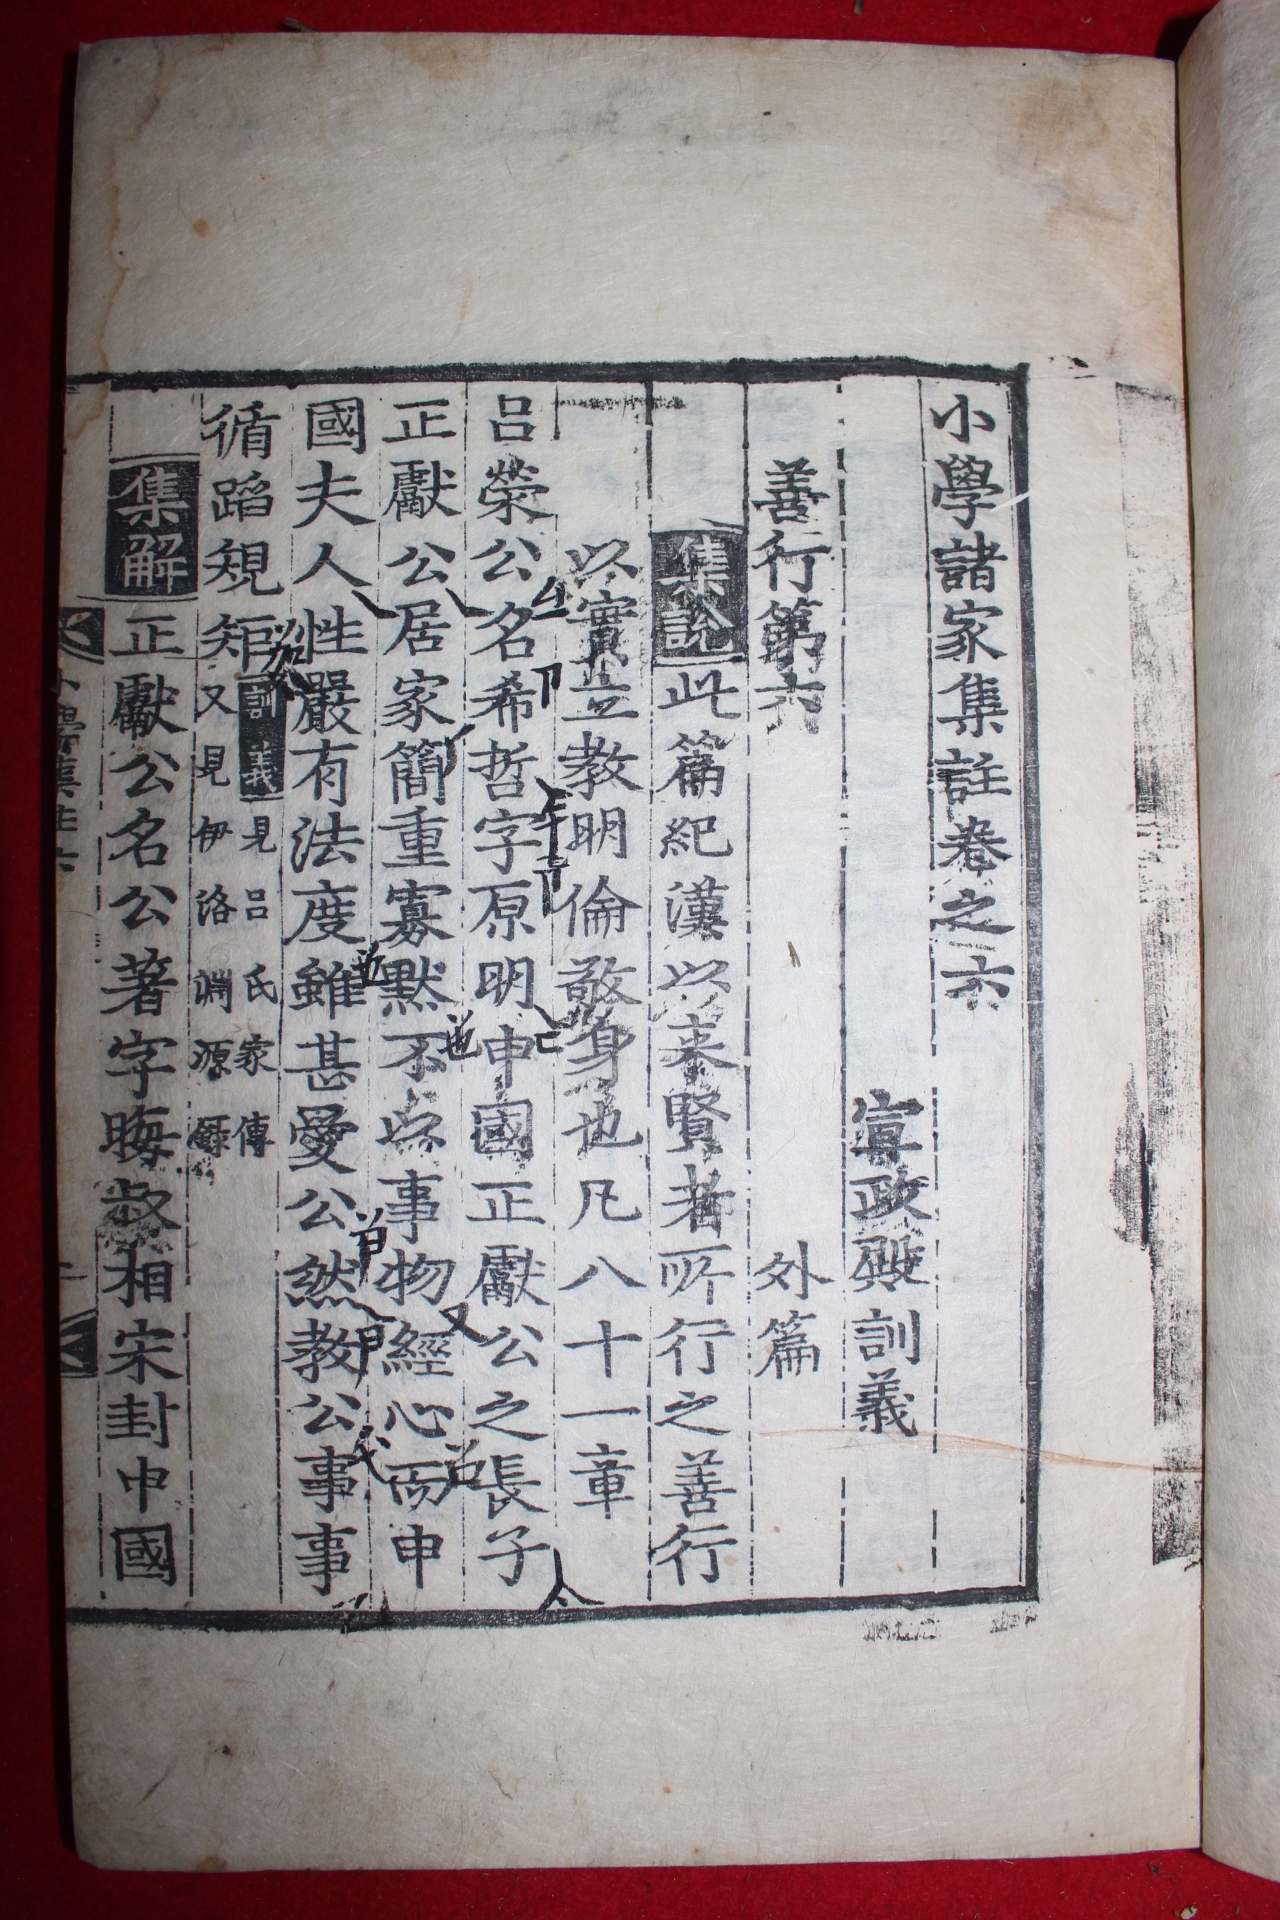 小學諸家集註卷之六
宣政殿訓義
善行第六 外篇
集說 此篇紀漢以来賢者所行之善行
以實立教明倫敬身也凡八十一章
呂榮公名希哲字原明申國正獻公之長子
正獻公居家簡重寡默不以事物經心而申
國夫人性嚴有法度雖甚愛公然教公事事
循蹈規矩 訓義 見呂氏家傳
又見伊洛淵源錄
集解 正獻公名公著字晦叔相宋封申國